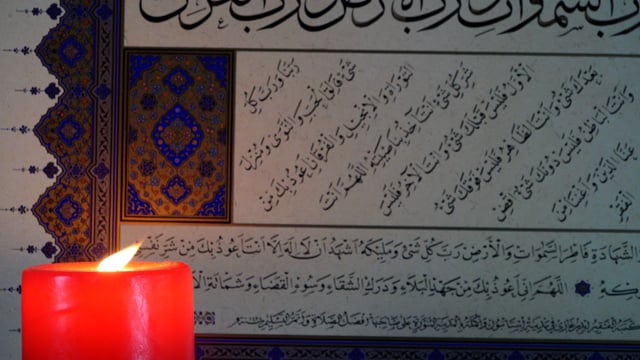 رب السموات ورب الأرض ورب العرش
ربنا ورب كل
شئ فالق الحب والنوى ومنزل
التوراة والإنجيل والفرقان أعوذ بك من
شر كل شئ أنت آخذ بناصيته اللهم أنت
الأول فليس قبلك شئ وأنت الآخر فليس
بعدك شئ وأنت الظاهر فليس فوقك شئ
وأنت الباطن فليس دونك شئ اقض
عنا الدين وأغننا من
الفقر
الشهادة فاطر السموات والأرض رب كل شئ ومليكه أشهد أن لا إله إلا أنت أعوذ بك من شر نفسي
اللهم إني أعوذ بك من جهد البلاء ودرك الشقاء وسوء القضاء وشماتة